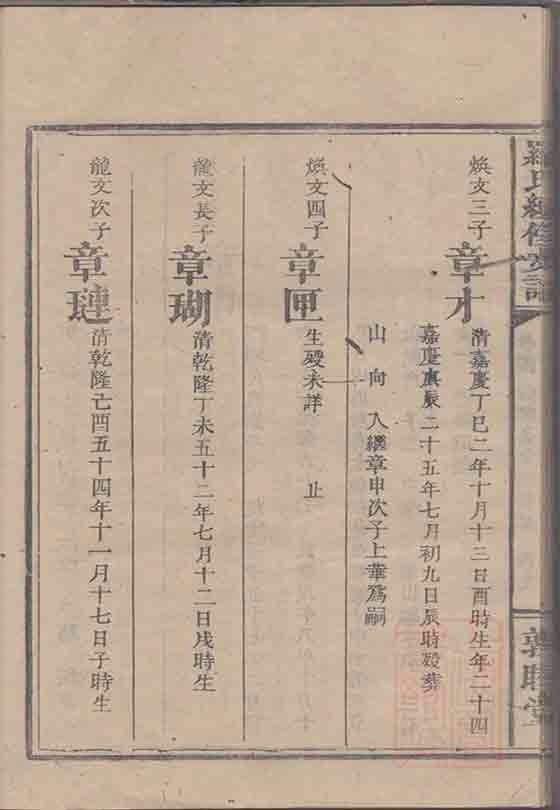 羅氏續修家譜
敦睦堂
煥文三子
章才
清嘉慶丁巳二年十月十三日酉時生年二十四
嘉慶庚辰二十五年七月初九日辰時歿葬
山向 入繼章申次子上華爲嗣
煥文四子
章匣
生歿未詳 止
龍文長子
章瑚
清乾隆丁未五十二年七月十二日戌時生
龍文次子
章璉
清乾隆己酉五十四年十一月十七日子時生